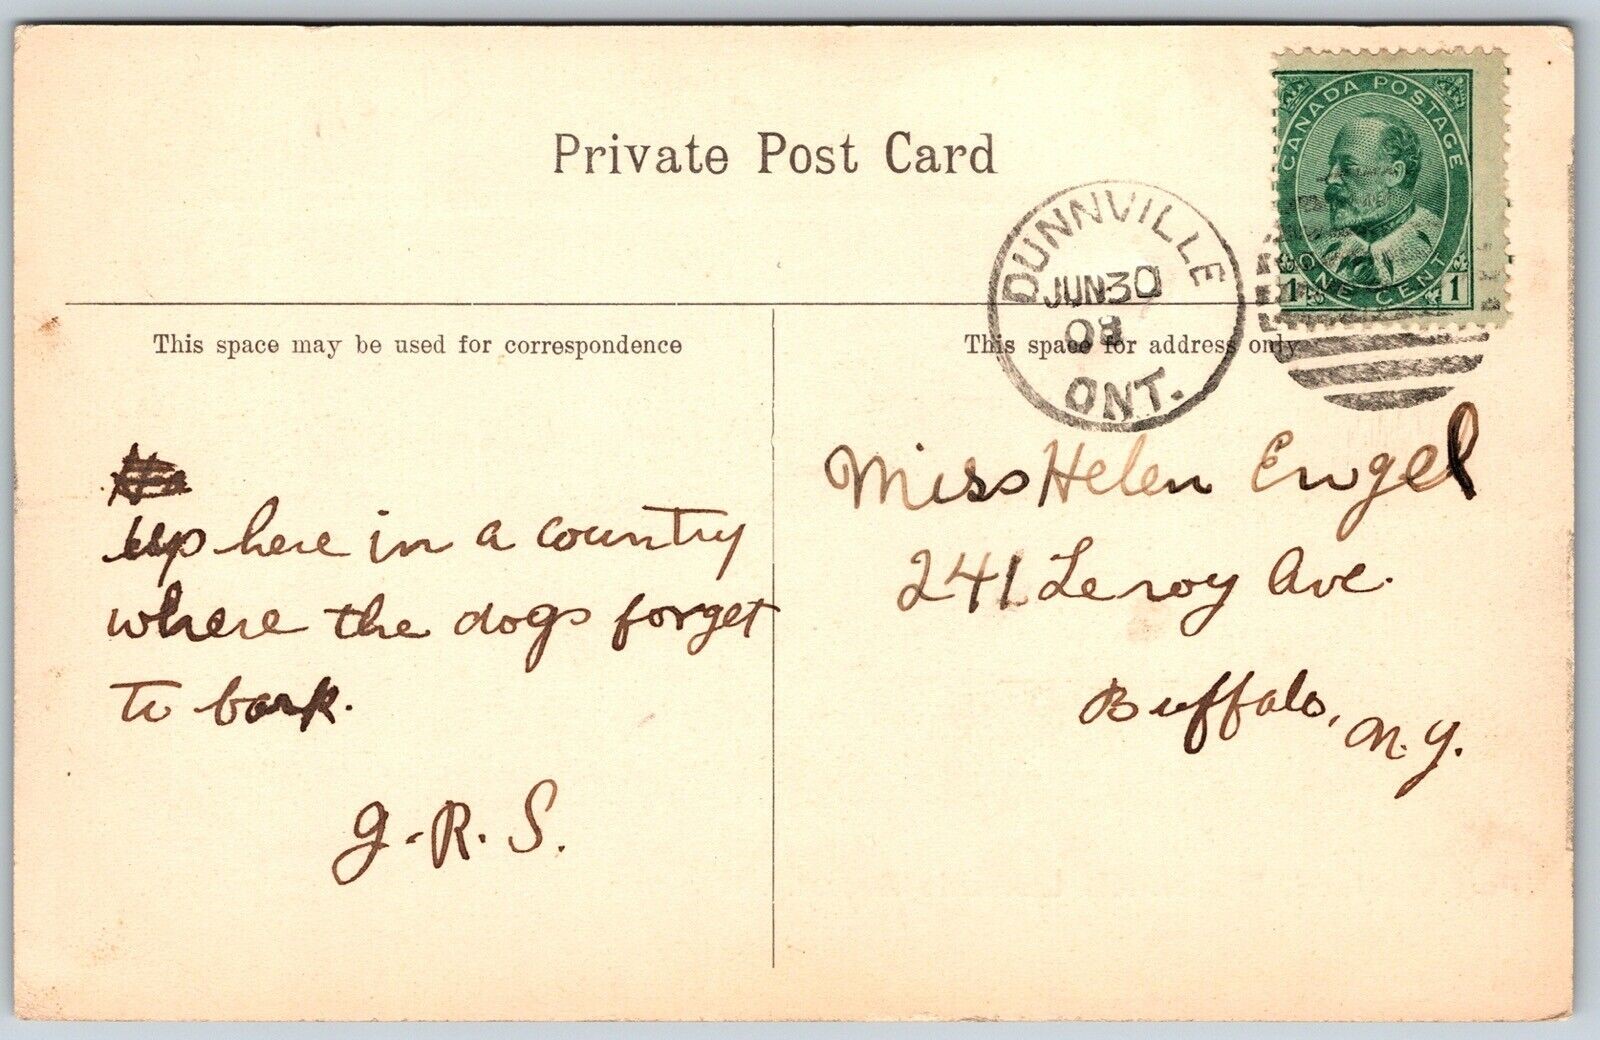 Private Post Card
CANADA POSTAGE
1 ONE CENT 1
DUNNVILLE
JUN 30
08
ONT.
This space may be used for correspondence
This space for address only
up here in a country
where the dogs forget
to bark.
J.R.S.
Miss Helen Engel
241 Leroy Ave.
Buffalo, N.Y.